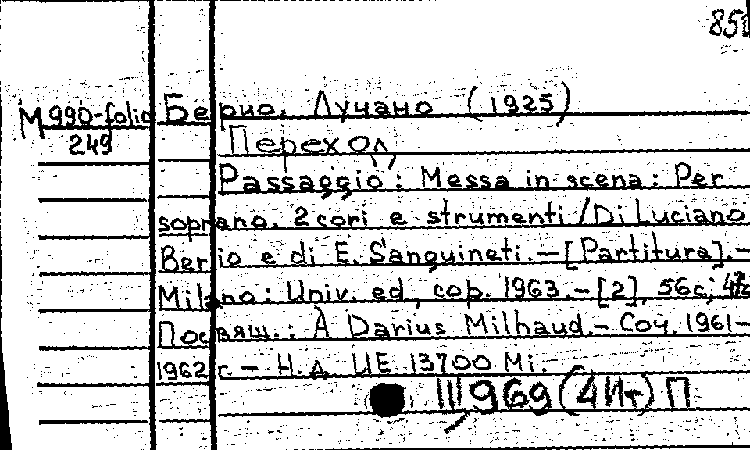 850
М 990-folio Берио, Лучано (1925)
249 Переход
Passaggio: Messa in scena: Per
soprano, 2 cori e strumenti / Di Luciano
Berio e di E. Sanguineti. — [Partitura]. —
Milano: Univ. ed., cop. 1963. — [2], 56 с;
Посвящ.: A Darius Milhaud. — Соч. 1961-
1962 г — Н. д. UE 13700 Mi.
III 969 (4 Ит) П